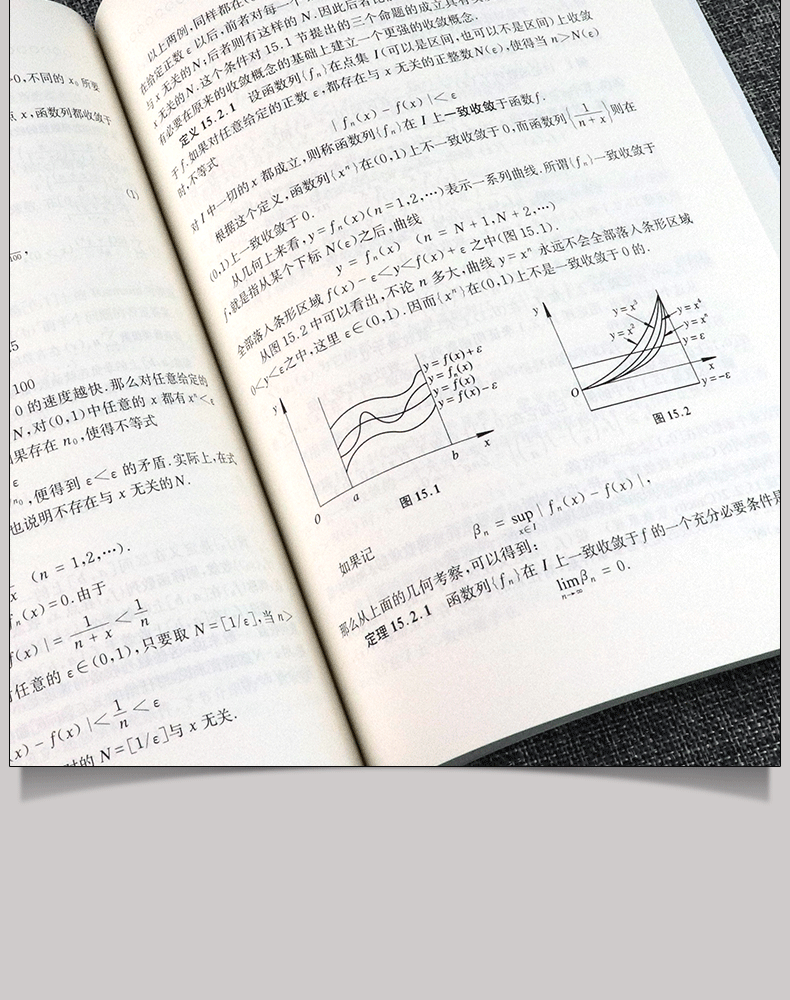 0,不同的 x₀ 所要
点 x,函数列都收敛于
(1)
100
0 的速度越快.那么对任意给定的
N,对(0,1)中任意的 x 都有 xⁿ<ε
果存在 n₀,使得不等式
ε
,便得到 ε<ε 的矛盾.实际上,在式
也说明不存在与 x 无关的 N.
x (n = 1,2,…).
fₙ(x)=0.由于
f(x)|= 1/(n + x) < 1/n
任意的 ε∈(0,1),只要取 N=[1/ε],当 n>
x) − f(x)|< 1/n < ε
的 N=[1/ε]与 x 无关.
以上两例,同样都在
在给定正数 ε 以后,前者对每一个
与 x 无关的 N;后者则有这样的 N.因此后者
x 无关的 N.这个条件对 15.1 节提出的三个命题的成立具有
有必要在原来的收敛概念的基础上建立一个更强的收敛概念.
定义 15.2.1 设函数列{fₙ}在点集 I(可以是区间,也可以不是区间)上收敛
于 f.如果对任意给定的正数 ε,都存在与 x 无关的正整数 N(ε),使得当 n>N(ε)
时,不等式
| fₙ(x) − f(x) | < ε
对 I 中一切的 x 都成立,则称函数列{fₙ}在 I 上一致收敛于函数 f.
根据这个定义,函数列{xⁿ}在(0,1)上不一致收敛于 0,而函数列{1/(n + x)}则在
(0,1)上一致收敛于 0.
从几何上来看,y=fₙ(x)(n=1,2,…)表示一系列曲线.所谓{fₙ}一致收敛于
f,就是指从某个下标 N(ε)之后,曲线
y = fₙ(x) (n = N + 1,N + 2,…)
全部落入条形区域 f(x) − ε<y<f(x) + ε 之中(图 15.1).
从图 15.2 中可以看出,不论 n 多大,曲线 y = xⁿ 永远不会全部落入条形区域
0<y<ε之中,这里 ε∈(0,1).因而{xⁿ}在(0,1)上不是一致收敛于 0 的.
y
y = f(x)+ε
y = fₙ(x)
y = f(x)
y = f(x)−ε
0
a
b
x
图 15.1
y
y=ε
y=−ε
O
x
图 15.2
如果记
βₙ = sup x∈I | fₙ(x) − f(x) |,
那么从上面的几何考察,可以得到:
定理 15.2.1 函数列{fₙ}在 I 上一致收敛于 f 的一个充分必要条件是
lim n→∞ βₙ = 0.